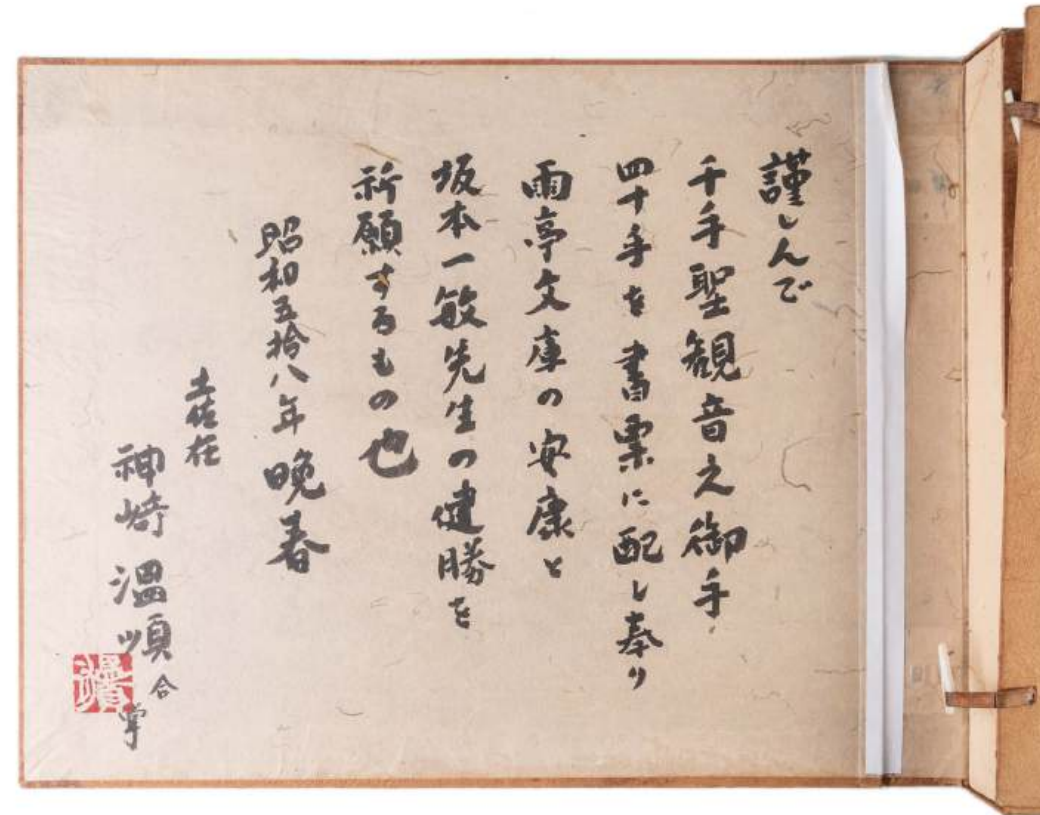 謹しんで
千手聖観音之御手
四十手を書票に配し奉り
雨亭文庫の安康と
坂本一敏先生の健勝を
祈願するもの也
昭和五拾八年晩春
土佐在
神崎温順
合掌